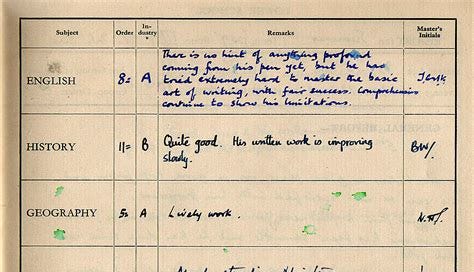 Subject Order In-dustry* Remarks Master's Initials
ENGLISH 8= A There is no hint of anything profound
coming from his pen yet, but he has
tried extremely hard to master the basic
art of writing, with fair success. Comprehension
continue to show his limitations.
HISTORY 11= B Quite good. His written work is improving BW/
slowly.
GEOGRAPHY 5= A Lively work.